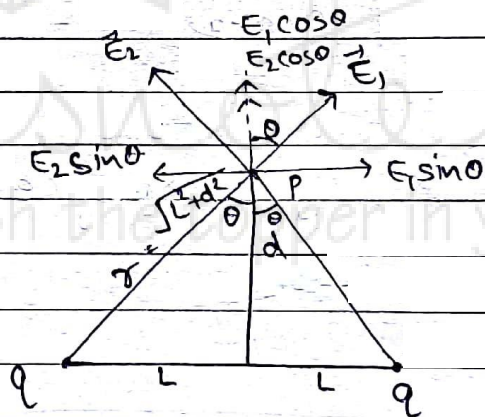 E₁cosθ
E₂cosθ
E⃗₂
E⃗₁
θ
E₂sinθ
E₁sinθ
P
r = √L²+d²
θ
θ
d
q
L
L
q